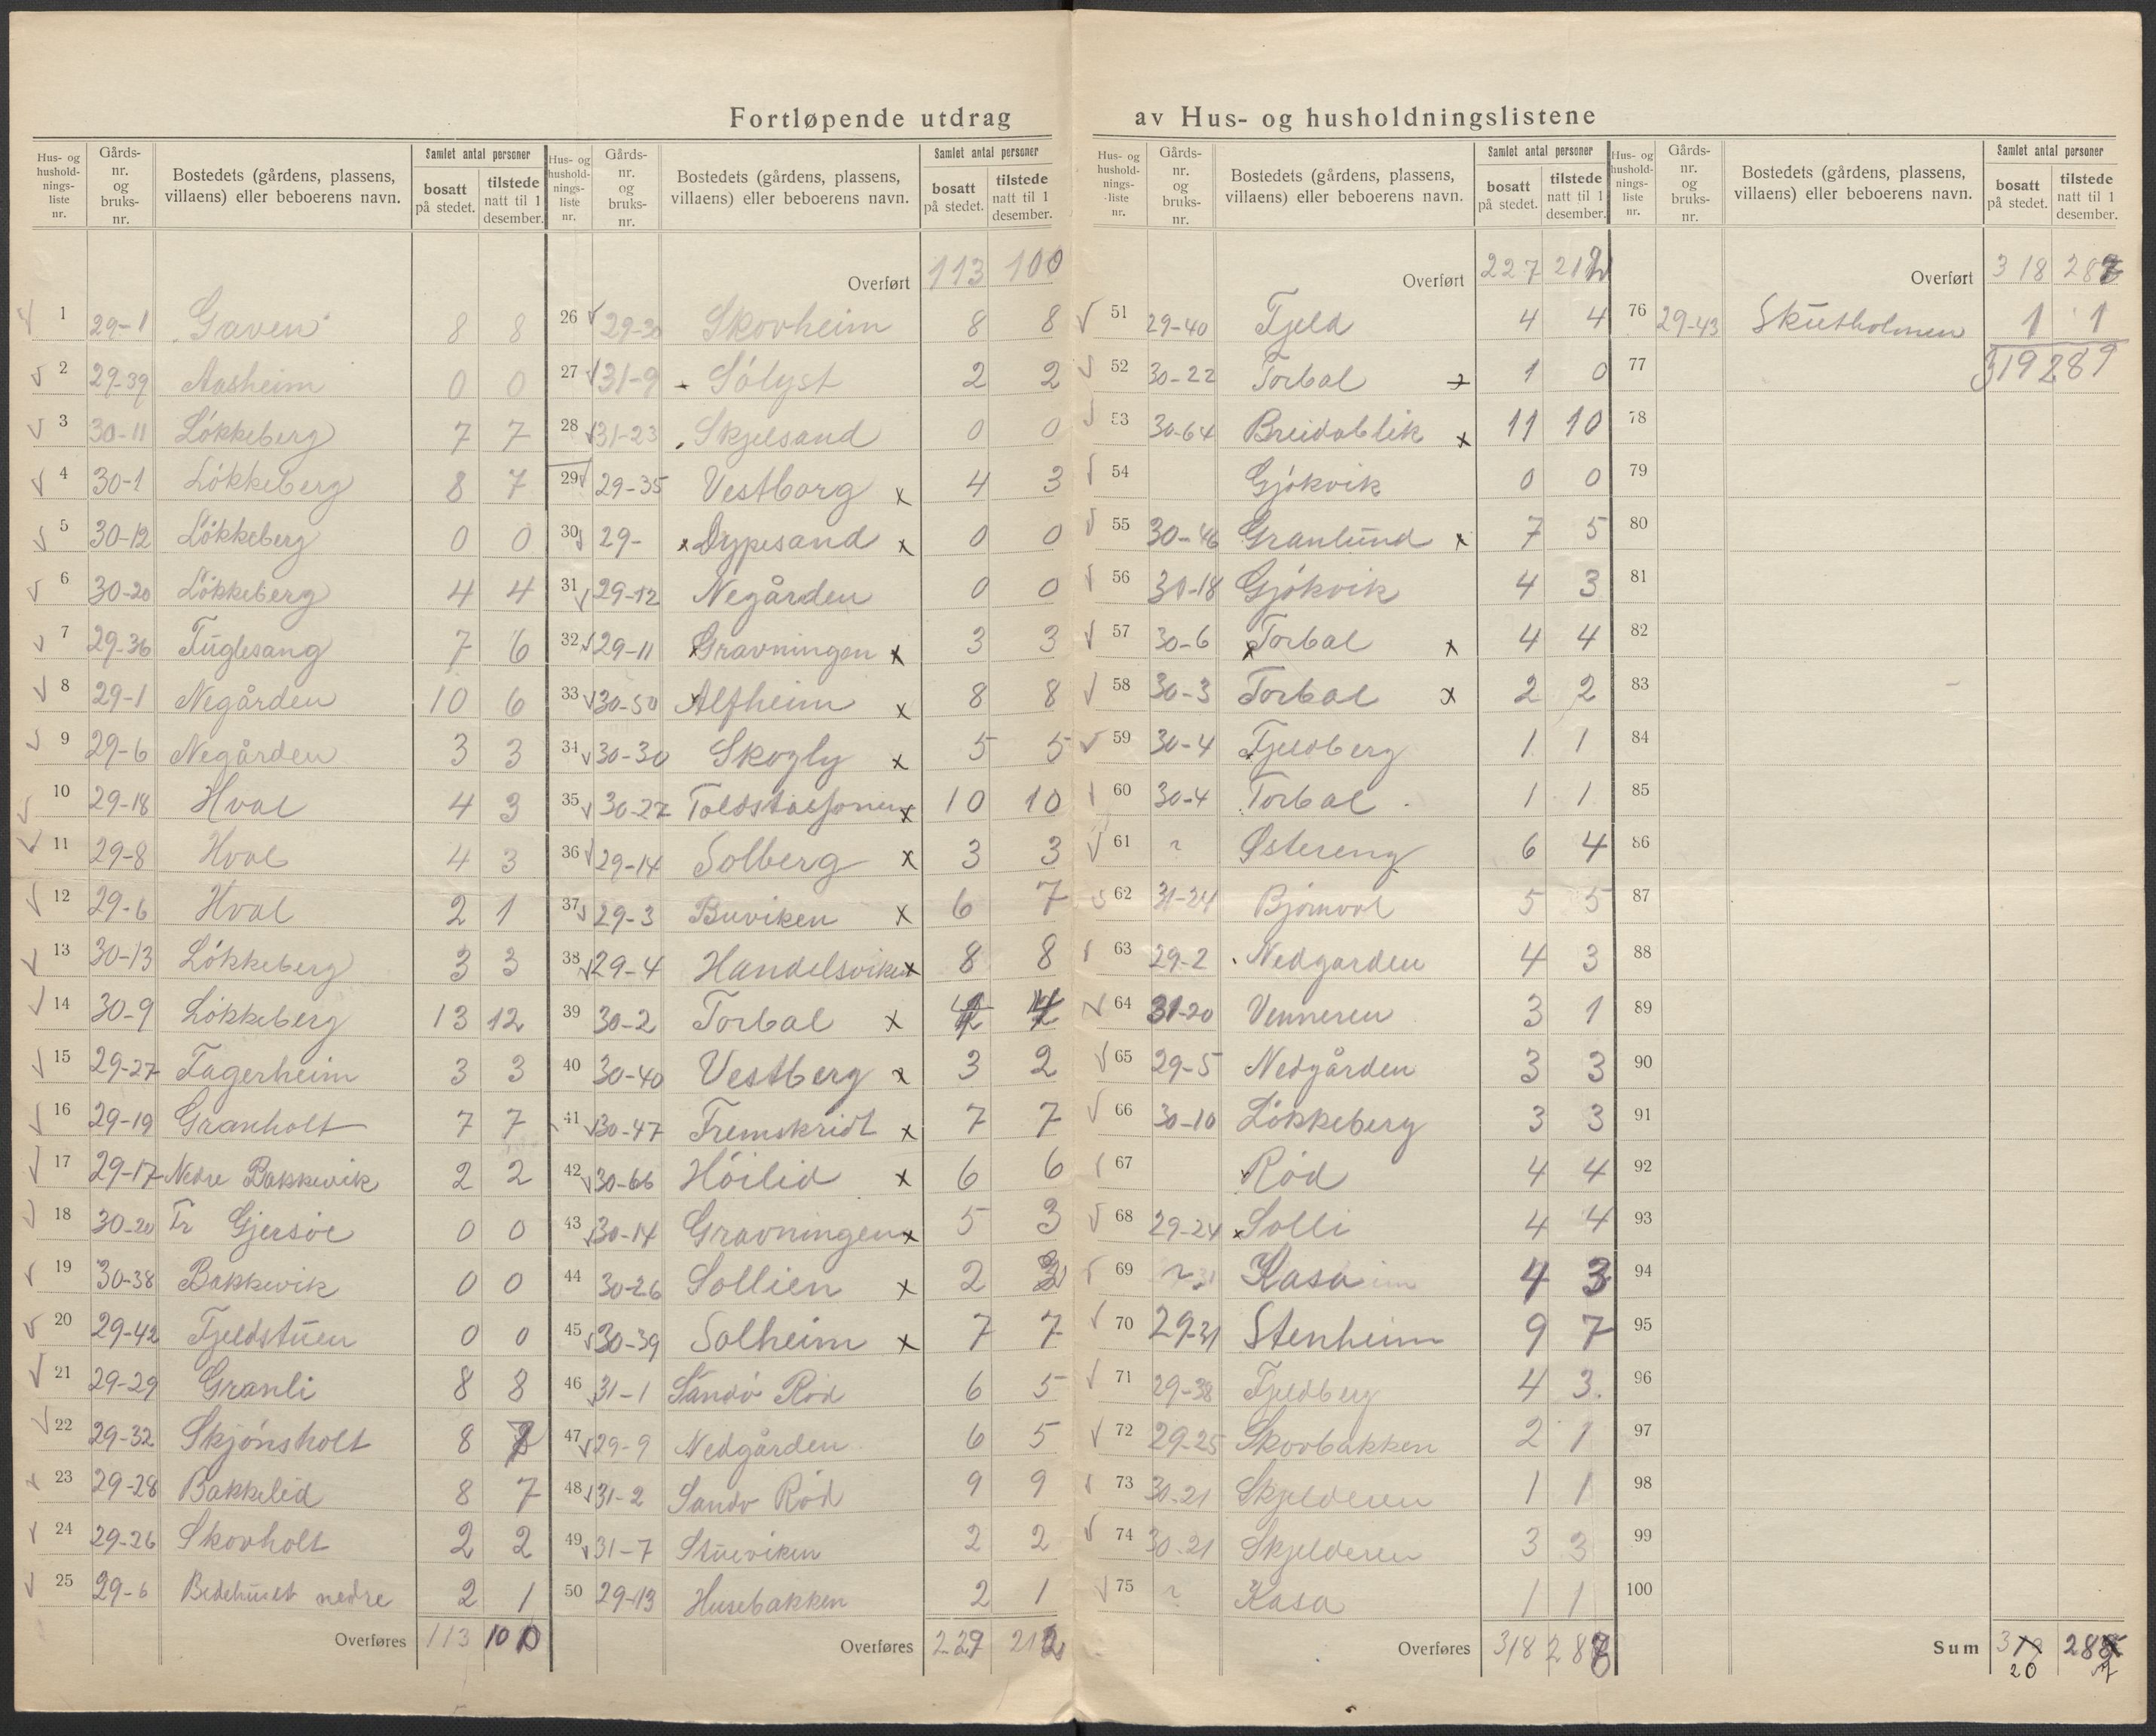 Fortløpende utdrag av Hus- og husholdningslistene
Hus- og hushold-nings-liste nr. Gårds-nr. og bruks-nr. Bostedets (gårdens, plassens, villaens) eller beboerens navn. Samlet antal personer bosatt på stedet. tilstede natt til 1 desember.
1 29-1 Gaven 8 8
2 29-39 Aasheim 0 0
3 30-11 Lökkeberg 7 7
4 30-1 Lökkeberg 8 7
5 30-12 Lökkeberg 0 0
6 30-20 Lökkeberg 4 4
7 29-36 Fuglesang 7 6
8 29-1 Negården 10 6
9 29-6 Negården 3 3
10 29-18 Hval 4 3
11 29-8 Hval 4 3
12 29-6 Hval 2 1
13 30-13 Lökkeberg 3 3
14 30-9 Lökkeberg 13 12
15 29-27 Fagerheim 3 3
16 29-19 Granholt 7 7
17 29-17 Nedre Bakkevik 2 2
18 30-20 Fr Gjersöe 0 0
19 30-38 Bakkevik 0 0
20 29-42 Fjeldstuen 0 0
21 29-29 Granli 8 8
22 29-32 Skjönsholt 8
23 29-28 Bakkelid 8 7
24 29-26 Skovholt 2 2
25 29-6 Bedehuset nedre 2 1
Overføres 113 100
Hus- og hushold-nings-liste nr. Gårds-nr. og bruks-nr. Bostedets (gårdens, plassens, villaens) eller beboerens navn. Samlet antal personer bosatt på stedet. tilstede natt til 1 desember.
Overført 113 100
26 29-30 Skovheim 8 8
27 31-9 Sölyst 2 2
28 31-23 Skjelsand 0 0
29 29-35 Vestborg x 4 3
30 29- x Dypesand x 0 0
31 29-12 Negården 0 0
32 29-11 x Gravningen x 3 3
33 30-50 x Alfheim x 8 8
34 30-30 Skogly x 5 5
35 30-27 Toldstasjonen x 10 10
36 29-14 Solberg x 3 3
37 29-3 Buviken x 6 7
38 29-4 Handelsviken x 8 8
39 30-2 Torbal x 4 4
40 30-40 Vestberg x 3 2
41 30-47 Fremskridt x 7 7
42 30-66 Höilid x 6 6
43 30-14 Gravningen x 5 3
44 30-26 Sollien x 2
45 30-39 Solheim x 7 7
46 31-1 Sandö Röd 6 5
47 29-9 Nedgården 6 5
48 31-2 Sandö Röd 9 9
49 31-7 Stueviken 2 2
50 29-13 Husebakken 2 1
Overføres 227 212
Hus- og hushold-nings-liste nr. Gårds-nr. og bruks-nr. Bostedets (gårdens, plassens, villaens) eller beboerens navn. Samlet antal personer bosatt på stedet. tilstede natt til 1 desember.
Overført 227 212
51 29-40 Fjeld 4 4
52 30-22 Torbal x 1 0
53 30-64 Breidablik x 11 10
54 Gjökvik 0 0
55 30-46 Granlund x 7 5
56 30-18 Gjökvik 4 3
57 30-6 x Torbal x 4 4
58 30-3 Torbal x 2 2
59 30-4 Fjeldberg 1 1
60 30-4 Torbal 1 1
61 ? Østereng 6 4
62 31-24 Björnvol 5 5
63 29-2 Nedgarden 4 3
64 31-20 Venneren 3 1
65 29-5 Nedgården 3 3
66 30-10 Lökkeberg 3 3
67 Röd 4 4
68 29-24 x Solli 4 4
69 Kasa 4 3
70 29-31 Stenheim 9 7
71 29-38 Fjeldberg 4 3
72 29-25 Skovbakken 2 1
73 30-21 Skjelderen 1 1
74 30-21 Skjelderen 3 3
75 ? Kasa 1 1
Overføres 318 288
Hus- og hushold-nings-liste nr. Gårds-nr. og bruks-nr. Bostedets (gårdens, plassens, villaens) eller beboerens navn. Samlet antal personer bosatt på stedet. tilstede natt til 1 desember.
Overført 318 288
76 29-43 Skutholmen 1 1
77 319 289
78
79
80
81
82
83
84
85
86
87
88
89
90
91
92
93
94
95
96
97
98
99
100
Sum 319 28
20